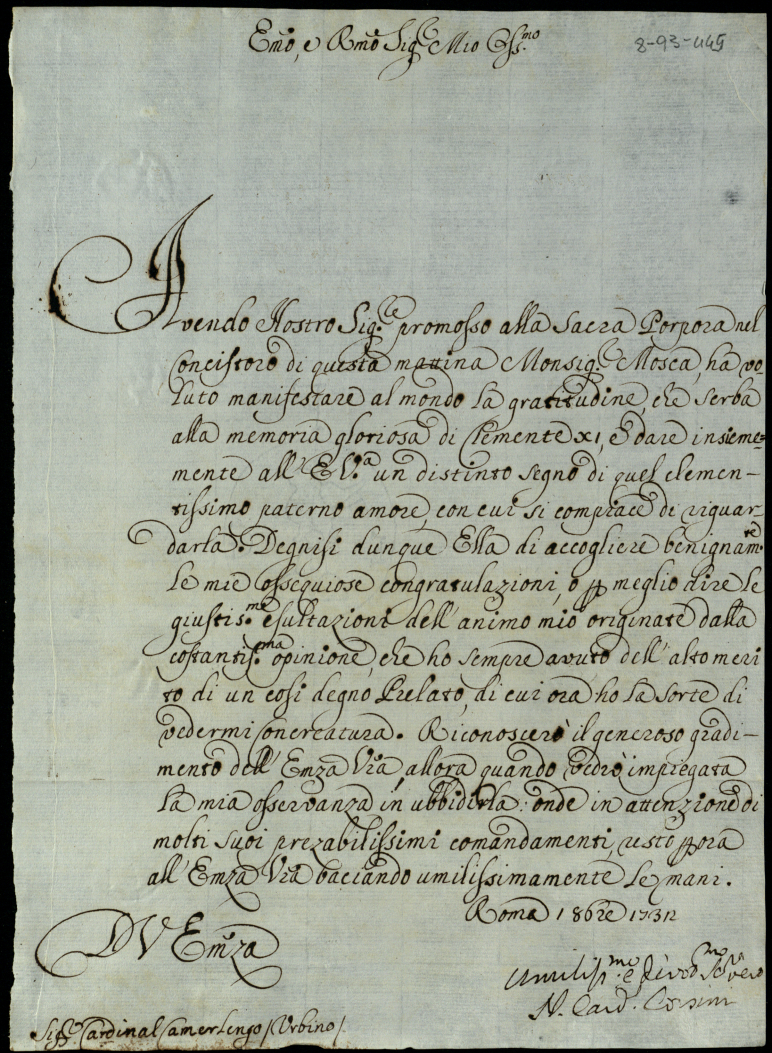 Emo, e Rmo Sig.re Mio Oss.mo
8-93-445
Avendo Nostro Sig.re promosso alla Sacra Porpora nel
Concistoro di questa mattina Monsig.re Mosca, ha vo-
luto manifestare al mondo la gratitudine, che serba
alla memoria gloriosa di Clemente XI, e dare insieme-
mente all'E V.a un distinto segno di quel clemen-
tissimo paterno amore, con cui si compiace di riguar-
darla. Degnisi dunque Ella di accogliere benignam.te
le mie ossequiose congratulazioni, o p meglio dire le
giustis.me esultazioni dell'animo mio originate dalla
costantis.ma opinione, che ho sempre avuto dell'alto meri
to di un così degno Prelato, di cui ora ho la sorte di
vedermi Concreatura. Riconoscerò il generoso gradi-
mento dell'Emza Vra, allora quando vedrò impiegata
la mia osservanza in ubbidirla: onde in attenzione di
molti suoi prezabilissimi comandamenti, resto p ora
all'Emza Vra baciando umilissimamente le mani.
Roma 1 8bre 1732
D V Emza
Umiliss.mo e divot.mo Ser vero
N. Card. Corsini
Sig.re Cardinal Camerlengo / Urbino /.